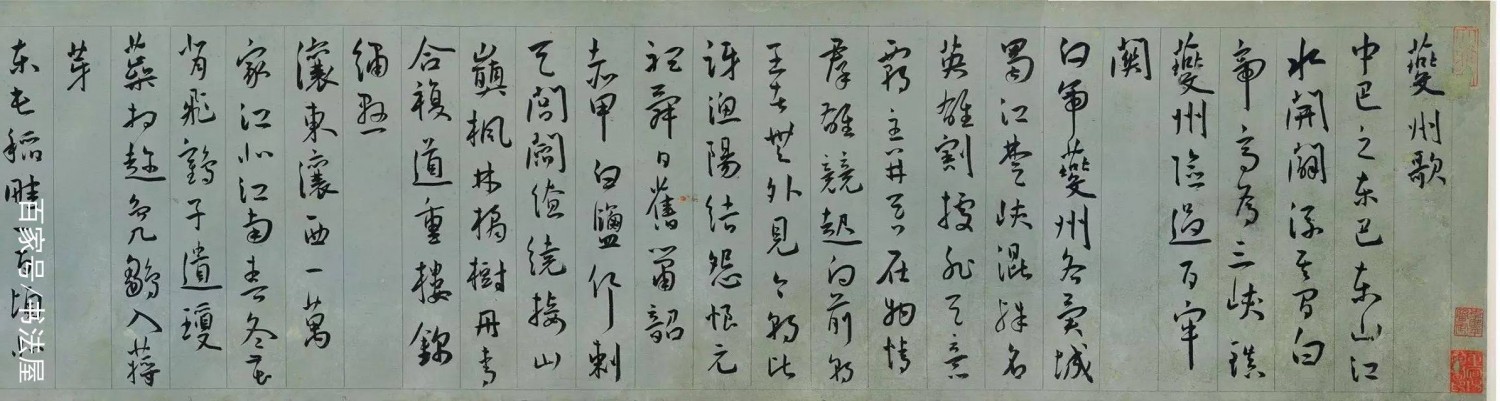 夔州歌
中巴之東巴東山江
水開闢流其間白
帝高為三峽鎮
夔州險過百牢
關
白帝夔州各異城
蜀江楚峽混殊名
英雄割據非天意
霸主并吞在物情
群雄競起向前朝
王者無外見今朝比
訝漁陽結怨恨元
聽舜日舊簫韶
赤甲白鹽俱刺
天閭閻繚繞接山
巔楓林橘樹丹青
合複道重樓錦
繡懸
瀼東瀼西一萬
家江北江南春冬花
背飛鶴子遺瓊
蘂相趁鳧雛入蔣
芽
東屯稻畦一百
百家号/书法屋